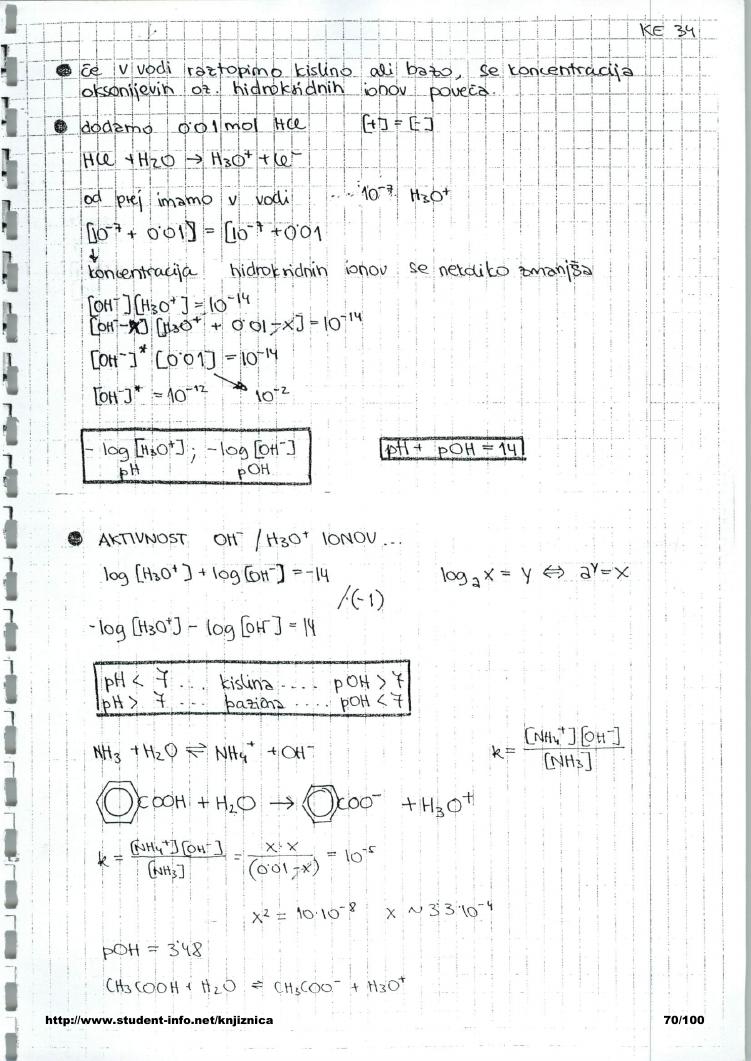 KE 34
če v vodi raztopimo kislino ali bazo, se koncentracija
oksonijevih oz. hidroksidnih ionov poveča.
dodamo 0'01 mol HCl [+] = [-]
HCl + H2O → H3O⁺ + Cl⁻
od prej imamo v vodi ... 10⁻⁷ H3O⁺
[10⁻⁷ + 0'01] = [10⁻⁷ + 0'01
↓
koncentracija hidrokridnih ionov se nekoliko zmanjša
[OH⁻][H3O⁺] = 10⁻¹⁴
[OH⁻-x] [H3O⁺ + 0'01,-x] = 10⁻¹⁴
[OH⁻]* [0'01] = 10⁻¹⁴
[OH⁻]* = 10⁻¹² 10⁻²
- log [H3O⁺] ; -log [OH⁻]
pH pOH
pH + pOH = 14
AKTIVNOST OH⁻ / H3O⁺ IONOV ...
log [H3O⁺] + log [OH⁻] = -14 logₐx = y ⇔ aʸ = x
/·(-1)
-log [H3O⁺] - log [OH⁻] = 14
pH < 7 ... kislina .... pOH > 7
pH > 7 ... bazična .... pOH < 7
NH3 + H2O ⇌ NH4⁺ + OH⁻ k = [NH4⁺][OH⁻] / [NH3]
COOH + H2O → COO⁻ + H3O⁺
k = [NH4⁺][OH⁻] / [NH3] = x·x / (0'01,-x) = 10⁻⁵
x² = 10·10⁻⁸ x ~ 3'3·10⁻⁴
pOH = 3'48
CH3COOH + H2O ⇌ CH3COO⁻ + H3O⁺
http://www.student-info.net/knjiznica 70/100